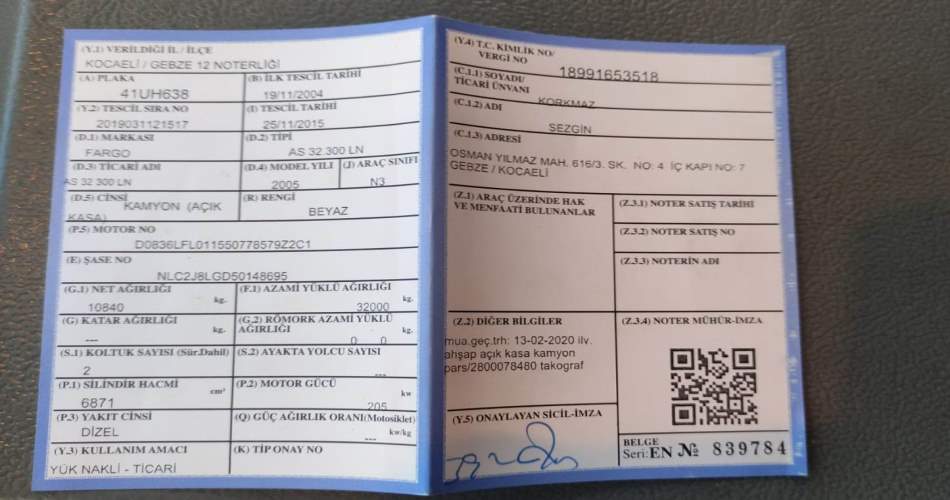 (Y.1) VERİLDİĞİ İL / İLÇE
KOCAELİ / GEBZE 12 NOTERLİĞİ
(A) PLAKA
41UH638
(B) İLK TESCİL TARİHİ
19/11/2004
(Y.2) TESCİL SIRA NO
2019031121517
(I) TESCİL TARİHİ
25/11/2015
(D.1) MARKASI
FARGO
(D.2) TİPİ
AS 32 300 LN
(D.3) TİCARİ ADI
AS 32 300 LN
(D.4) MODEL YILI
2005
(J) ARAÇ SINIFI
N3
(D.5) CİNSİ
KAMYON (AÇIK
KASA)
(R) RENGİ
BEYAZ
(P.5) MOTOR NO
D0836LFL011550778579Z2C1
(E) ŞASE NO
NLC2J8LGD50148695
(G.1) NET AĞIRLIĞI
10840 kg.
(F.1) AZAMİ YÜKLÜ AĞIRLIĞI
32000 kg.
(G) KATAR AĞIRLIĞI
--- kg.
(G.2) RÖMORK AZAMİ YÜKLÜ
AĞIRLIĞI kg.
0 0
(S.1) KOLTUK SAYISI (Sür.Dahil)
2
(S.2) AYAKTA YOLCU SAYISI
---
(P.1) SİLİNDİR HACMİ
6871 cm³
(P.2) MOTOR GÜCÜ
205 kw
(P.3) YAKIT CİNSİ
DİZEL
(Q) GÜÇ AĞIRLIK ORANI(Motosiklet)
--- kw/kg
(Y.3) KULLANIM AMACI
YÜK NAKLİ - TİCARİ
(K) TİP ONAY NO
(Y.4) T.C. KİMLİK NO/
VERGİ NO
18991653518
(C.1.1) SOYADI/
TİCARİ ÜNVANI
KORKMAZ
(C.1.2) ADI
SEZGİN
(C.1.3) ADRESİ
OSMAN YILMAZ MAH. 616/3. SK. NO: 4 İÇ KAPI NO: 7
GEBZE / KOCAELİ
(Z.1) ARAÇ ÜZERİNDE HAK
VE MENFAATİ BULUNANLAR
(Z.3.1) NOTER SATIŞ TARİHİ
(Z.3.2) NOTER SATIŞ NO
(Z.3.3) NOTERİN ADI
(Z.2) DİĞER BİLGİLER
mua.geç.trh: 13-02-2020 ilv.
ahşap açık kasa kamyon
pars/2800078480 takograf
(Z.3.4) NOTER MÜHÜR-İMZA
(Y.5) ONAYLAYAN SİCİL-İMZA
BELGE
Seri:EN № 839784